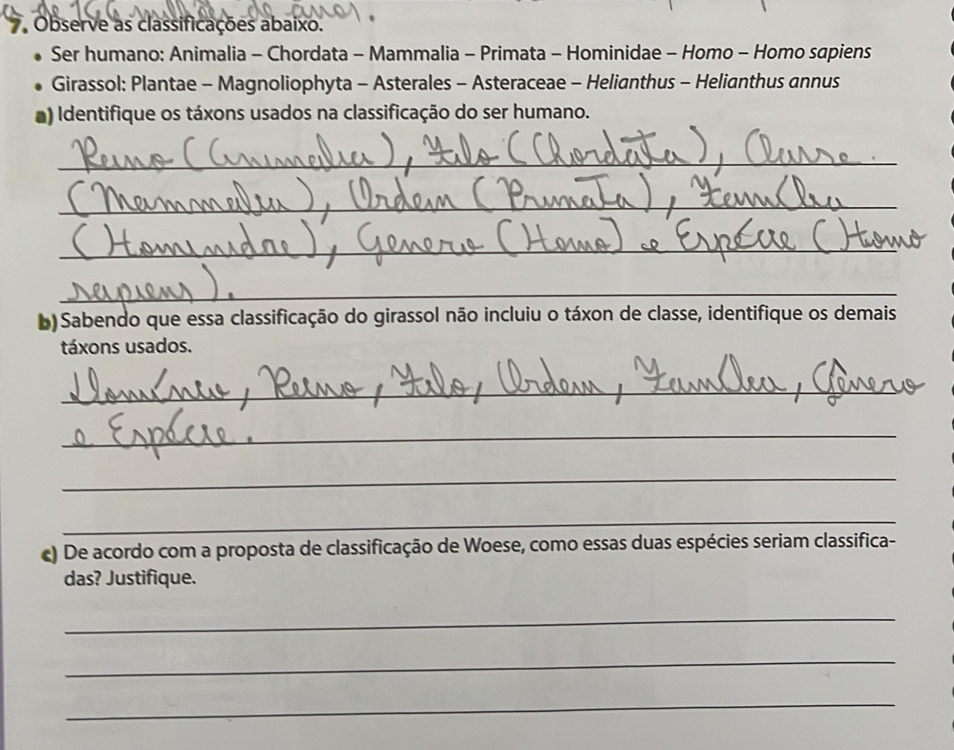 a de 166 milhões de anos.
7. Observe as classificações abaixo.
• Ser humano: Animalia – Chordata – Mammalia – Primata – Hominidae – Homo – Homo sapiens
• Girassol: Plantae – Magnoliophyta – Asterales – Asteraceae – Helianthus – Helianthus annus
a) Identifique os táxons usados na classificação do ser humano.
Reino (Animalia), Filo (Chordata), Classe
(Mammalia), Ordem (Primata), Família
(Hominidae), Genero (Homo) e Espécie (Homo
sapiens).
b) Sabendo que essa classificação do girassol não incluiu o táxon de classe, identifique os demais
táxons usados.
Domínio, Reino, Filo, Ordem, Família, Gênero
e Espécie.
c) De acordo com a proposta de classificação de Woese, como essas duas espécies seriam classifica-
das? Justifique.